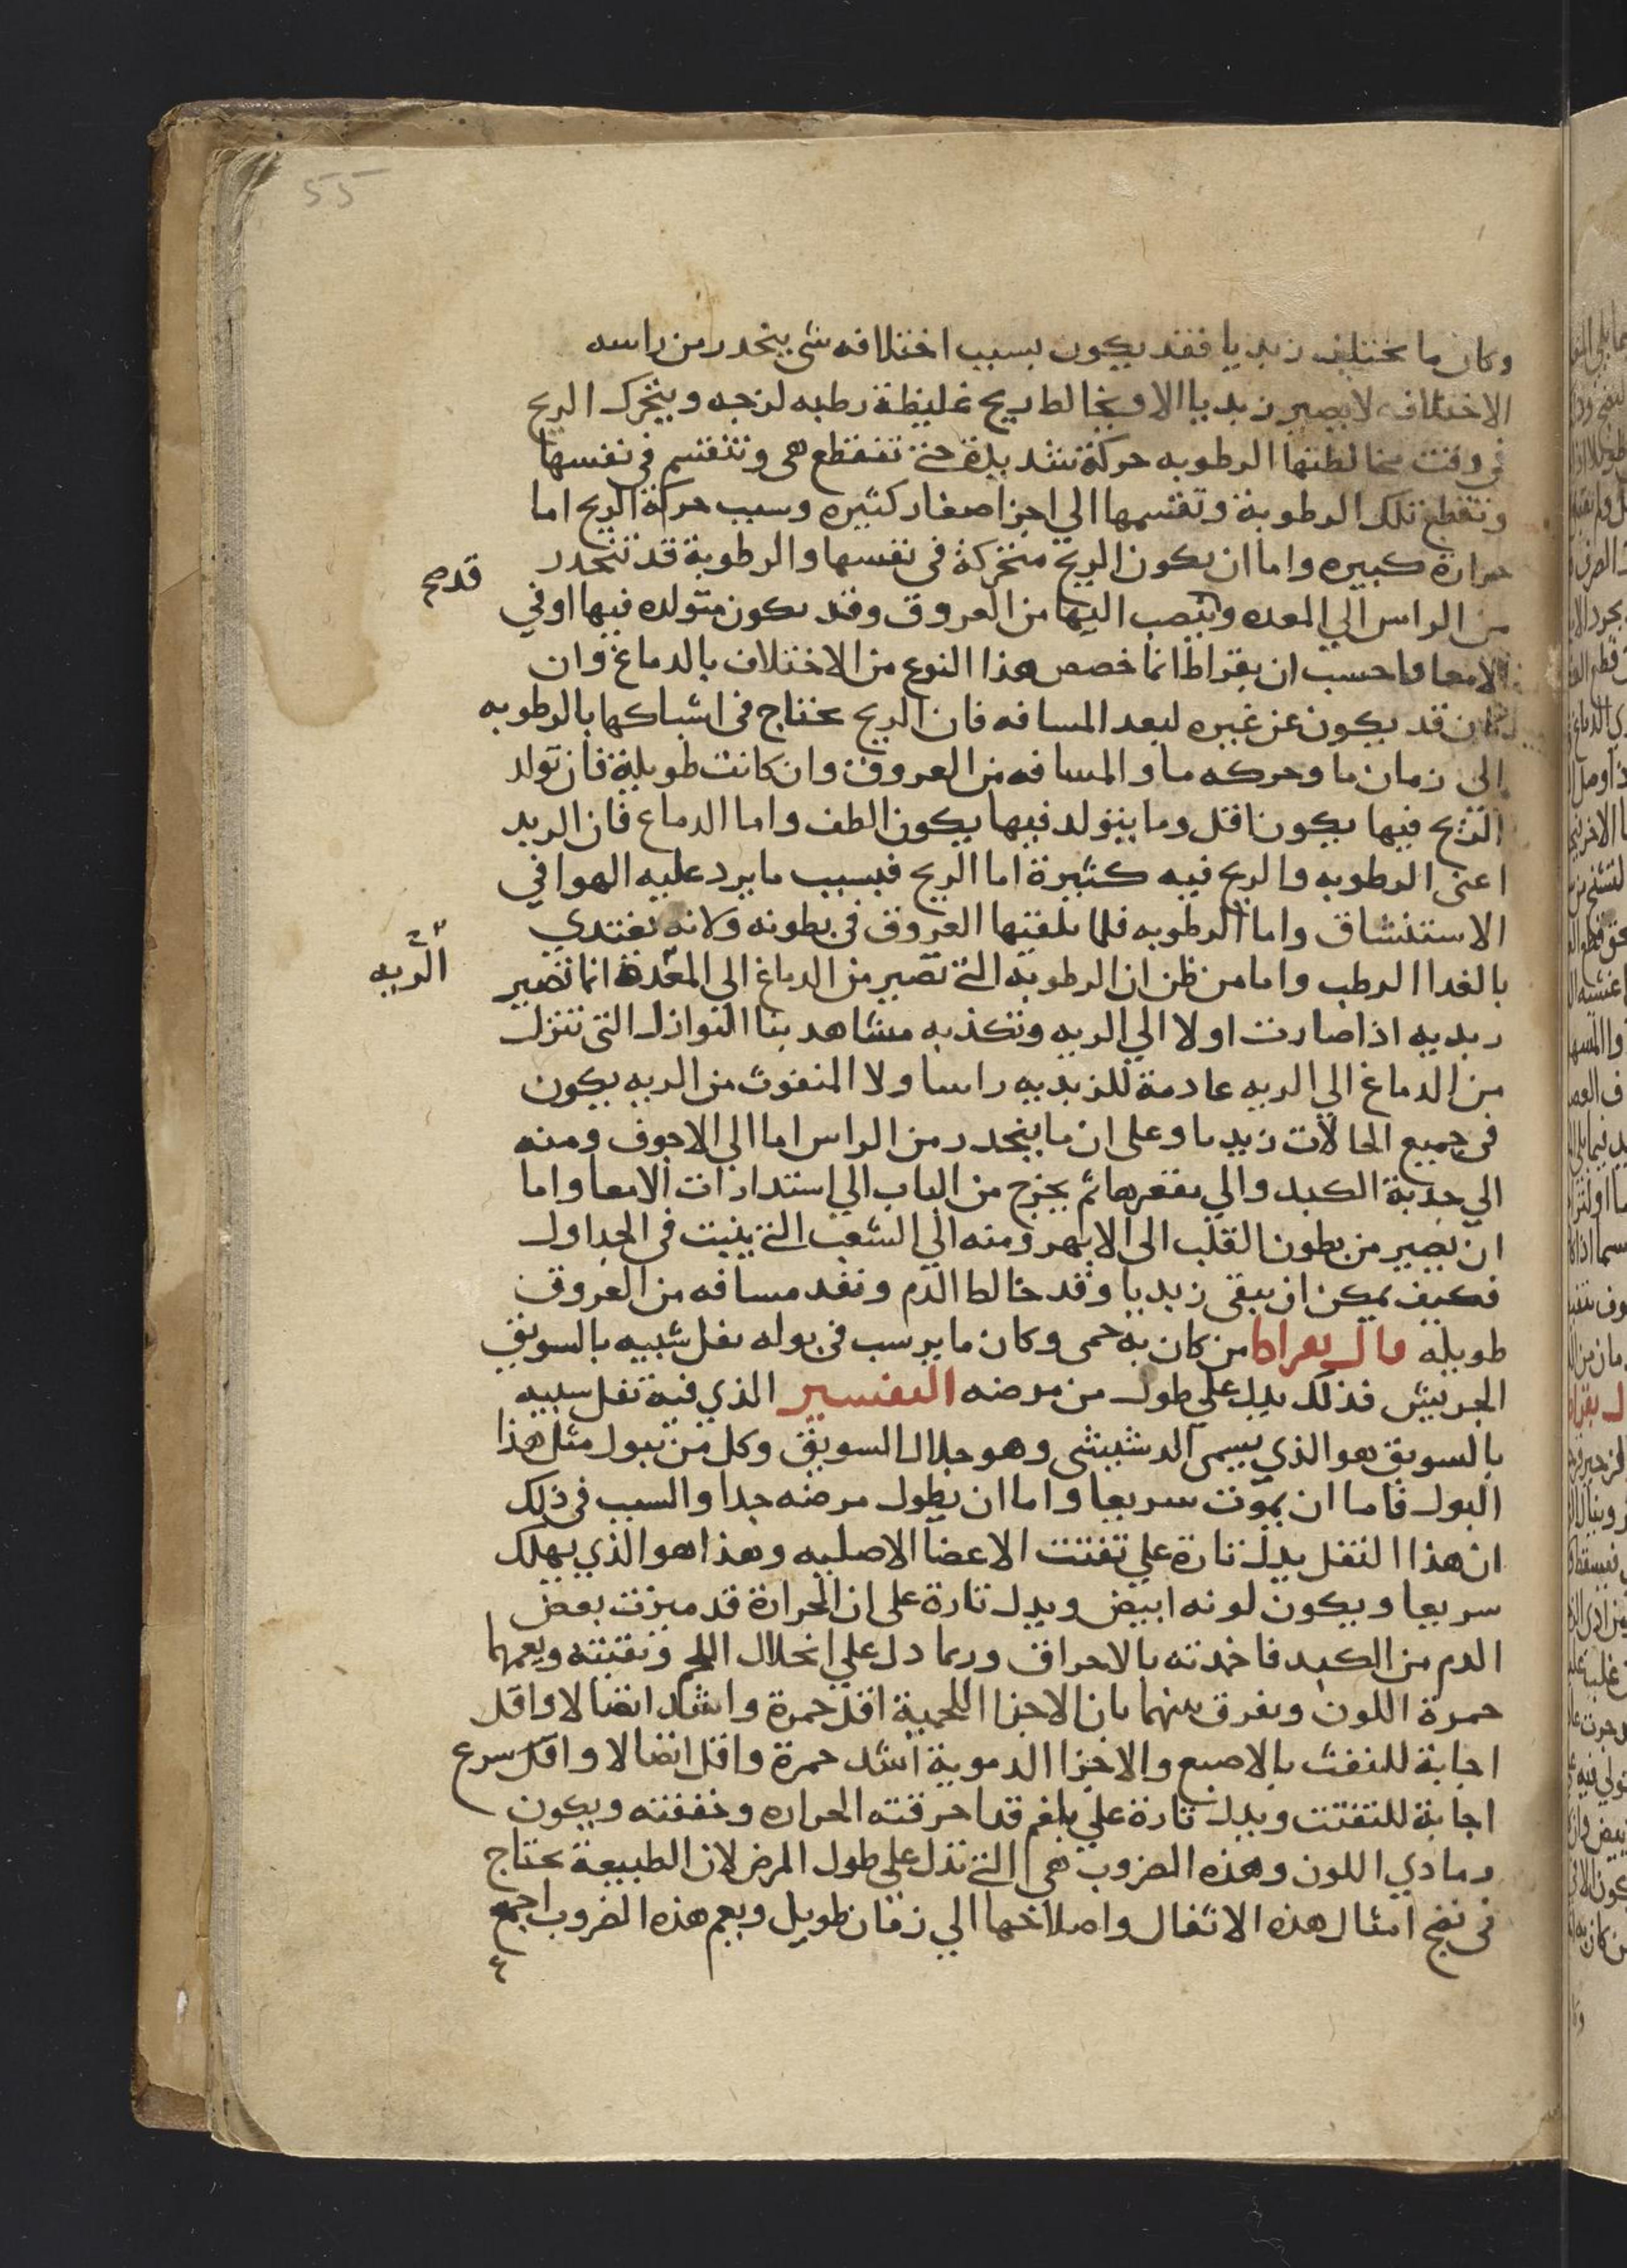 55
وكان ما يختلف زبديا فقد يكون بسبب اختلافه شي ينحدر من راسه
الاختلاف لا يصير زبديا الا ويخالط ريح غليظة رطبه لزجه ويتحرك الريح
في وقت مخالطتها الرطوبه حركة شديدة حتى تنقطع هي وتنقسم في نفسها
وتقطع تلك الرطوبة وتقسمها الي اجزا صغار كثيره وسبب حركة الريح اما
حرارة كبيره واما ان يكون الريح متحركة في نفسها والرطوبة قد تنحدر
قد صح
من الراس الي المعده وتنصب اليها من العروق وقد يكون متولده فيها او في
الامعا واحسب ان بقراط انما خصص هذا النوع من الاختلاف بالدماغ وان
كان قد يكون عن غيره لبعد المسافه فان الريح تحتاج في اشباكها بالرطوبه
الى زمان ما وحركه ما والمسافه من العروق وان كانت طويلة فان تولد
الريح فيها يكون اقل وما يتولد فيها يكون الطف واما الدماغ فان الزبد
اعني الرطوبه والريح فيه كثيرة اما الريح فبسبب ما يرد عليه الهوا في
الاستنشاق واما الرطوبه فلما تلقيها العروق في بطونه ولانه يغتدي
بالغدا الرطب واما من ظن ان الرطوبة التي تصير من الدماغ الي المعدة انما تصير
الريه
زبديه اذا صارت اولا الي الريه وتكذبه مشاهدتنا النوازل التي تنزل
من الدماغ الي الريه عادمة للزبديه راسا ولا المنفوث من الريه يكون
في جميع الحالات زبديا وعلى ان ما ينحدر من الراس اما الي الاجوف ومنه
الي حدبة الكبد والي مقعرها ثم يخرج من الباب الي استدارات الامعا واما
ان يصير من بطون القلب الى الابهر ومنه الي الشعب التي ينبت في الجداول
فكيف يمكن ان يبقى زبديا وقد خالط الدم ونفد مسافه من العروق
طويله قال بقراط من كان به حمى وكان ما يرسب في بوله ثفل شبيه بالسويق
الجريش فذلك يدل علي طول من مرضه التفسير الذي فيه ثفل شبيه
بالسويق هو الذي يسمى الدشيشي وهو جلال السويق وكل من يبول مثل هذا
البول فاما ان يموت سريعا واما ان يطول مرضه جدا والسبب في ذلك
ان هذا الثفل يدل تارة علي تفتت الاعضا الاصليه وهذا هو الذي يهلك
سريعا ويكون لونه ابيض ويدل تارة على ان الحرارة قد ميزت بعض
الدم من الكبد فاخدته بالاحراق وربما دل علي انحلال اللحم وتفتته ويعمهما
حمرة اللون ويفرق بينهما بان الاجزا اللحمية اقل حمرة واشد اتصالا واقل
اجابة للتفتت بالاصبع والاجزا الدموية اشد حمرة واقل اتصالا واقل سرع
اجابة للتفتت ويدل تارة علي بلغم قد احرقته الحراره وخففته ويكون
رمادي اللون وهذه الضروب هي التي تدل على طول المرض لان الطبيعة تحتاج
في نضج امثال هذه الاثفال واصلاحها الي زمان طويل ويعم هذه الضروب اجمع